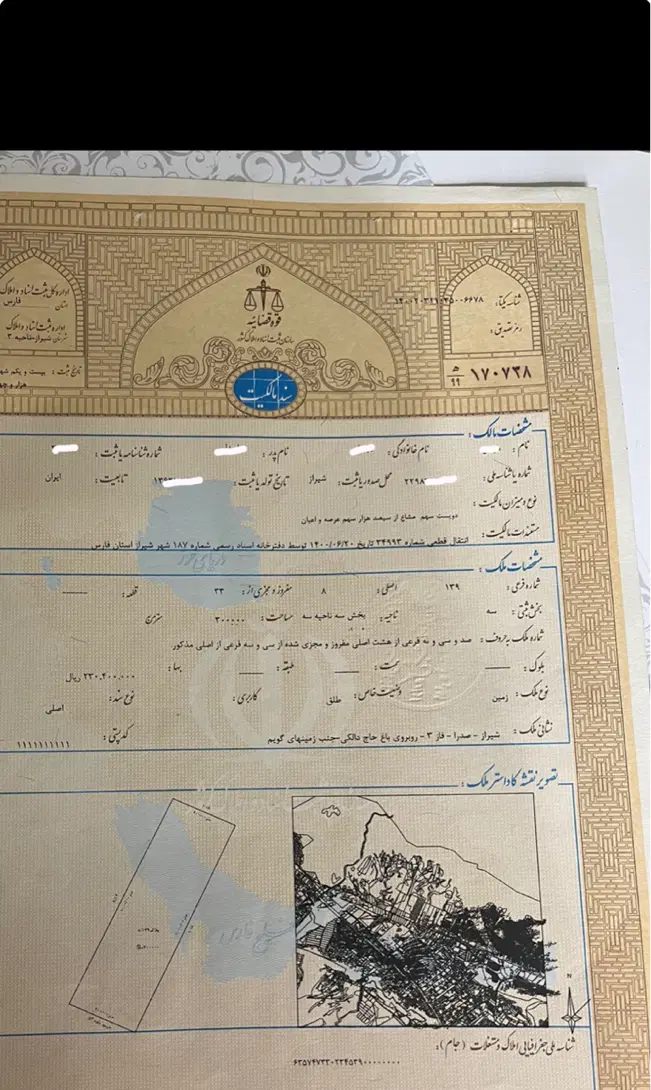 قوه قضائیه
سازمان ثبت اسناد و املاک کشور
سند مالکیت
اداره کل ثبت اسناد و املاک
استان فارس
اداره ثبت اسناد و املاک
شهرستان شیراز-ناحیه ۳
تاریخ ثبت : بیست و یکم
شناسه یکتا:
رمز تصدیق :
۱۷۰۷۳۸
۹۹
مشخصات مالک :
نام : نام خانوادگی : نام پدر : شماره شناسنامه یا ثبت :
شماره یا شناسه ملی : ۲۲۹۸ محل صدور یا ثبت : شیراز تاریخ تولد یا ثبت : تابعیت : ایران
نوع و میزان مالکیت : دویست سهم مشاع از سیصد هزار سهم عرصه و اعیان
مستندات مالکیت : انتقال قطعی شماره ۳۴۹۹۳ تاریخ ۱۴۰۰/۰۶/۲۰ توسط دفترخانه اسناد رسمی شماره ۱۸۷ شهر شیراز استان فارس
مشخصات ملک :
شماره فرعی : ۱۳۹ اصلی : ۸ مفروز و مجزی از : ۳۳ قطعه :
بخش ثبتی : سه ناحیه : بخش سه ناحیه سه مساحت : ۳۰۰۰۰۰ مترمربع
شماره ملک به حروف : صد و سی و نه فرعی از هشت اصلی مفروز و مجزی شده از سی و سه فرعی از اصلی مذکور
بلوک : سمت : طبقه : بها : ۲۳۰,۴۰۰,۰۰۰ ریال
نوع ملک : زمین وضعیت خاص : طلق کاربری : نوع سند : اصلی
نشانی ملک : شیراز - صدرا - فاز ۳- روبروی باغ حاج دالکی-جنب زمینهای گویم کدپستی : ۱۱۱۱۱۱۱۱۱۱
تصویر نقشه کاداستر ملک :
دریای خزر
خلیج فارس
N
شناسه ملی جغرافیایی املاک و مستغلات (جام) :